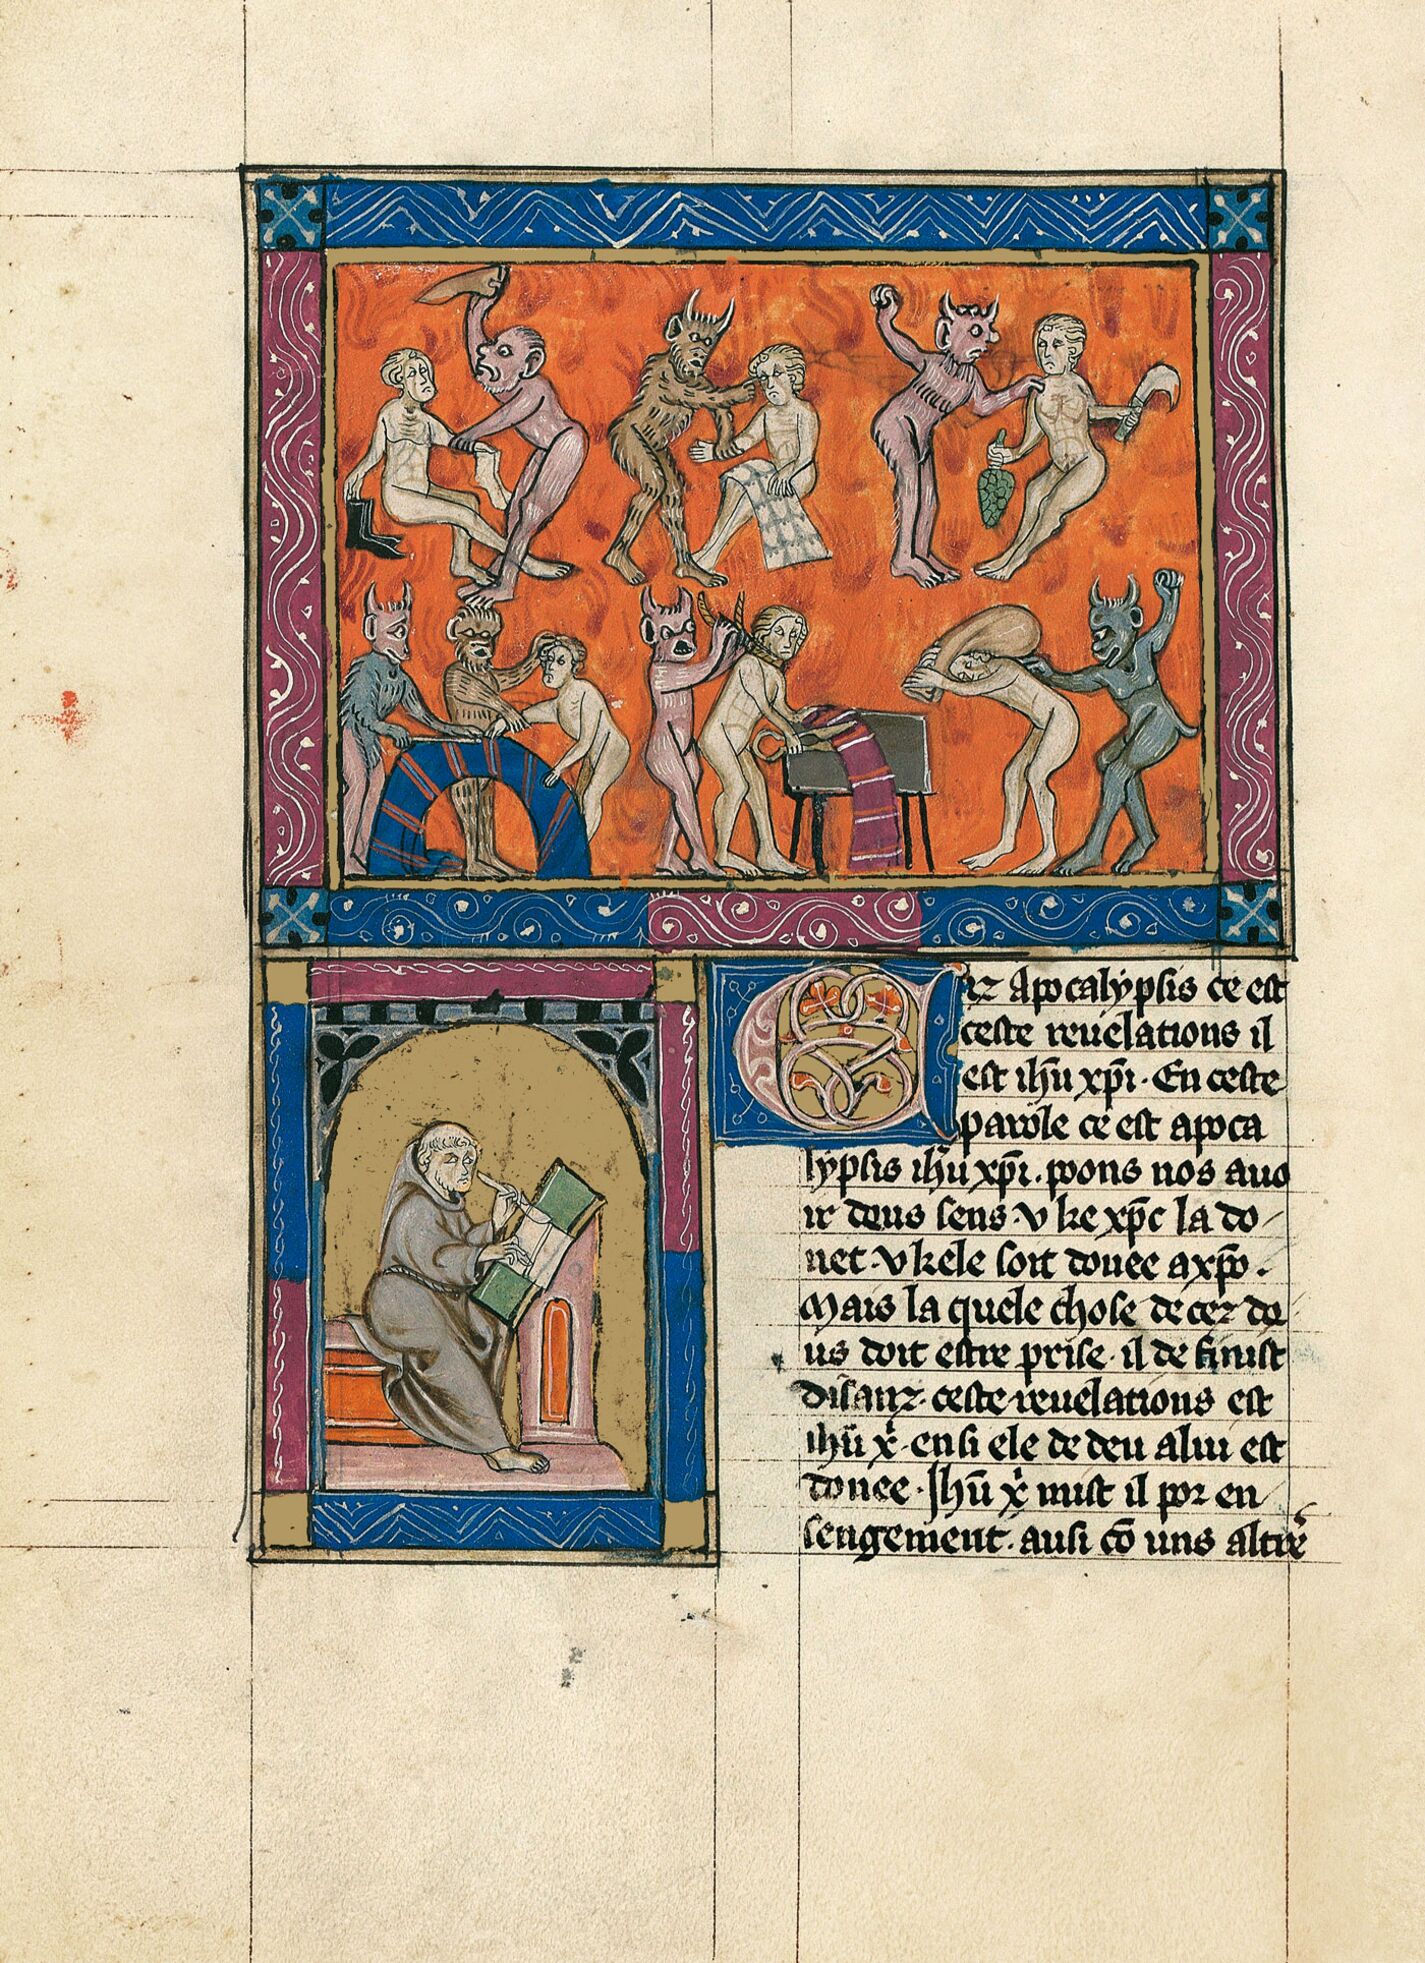 CIz Apocalypsis ce est
ceste reuelations il
est ihū xp̄i · En ceste
parole ce est apoca
lypsis ihū xp̄i · poons nos auo
ir deus sens · v ke xp̄c la do
net · v kele soit donee a xp̄o ·
Mais la quele chose de cez de
us doit estre prise · il de finist
disanz · ceste reuelations est
ihū x̄ · en si ele de deu a lui est
donee · Jhū x̄ mist il por en
sengement · ausi cō uns altre